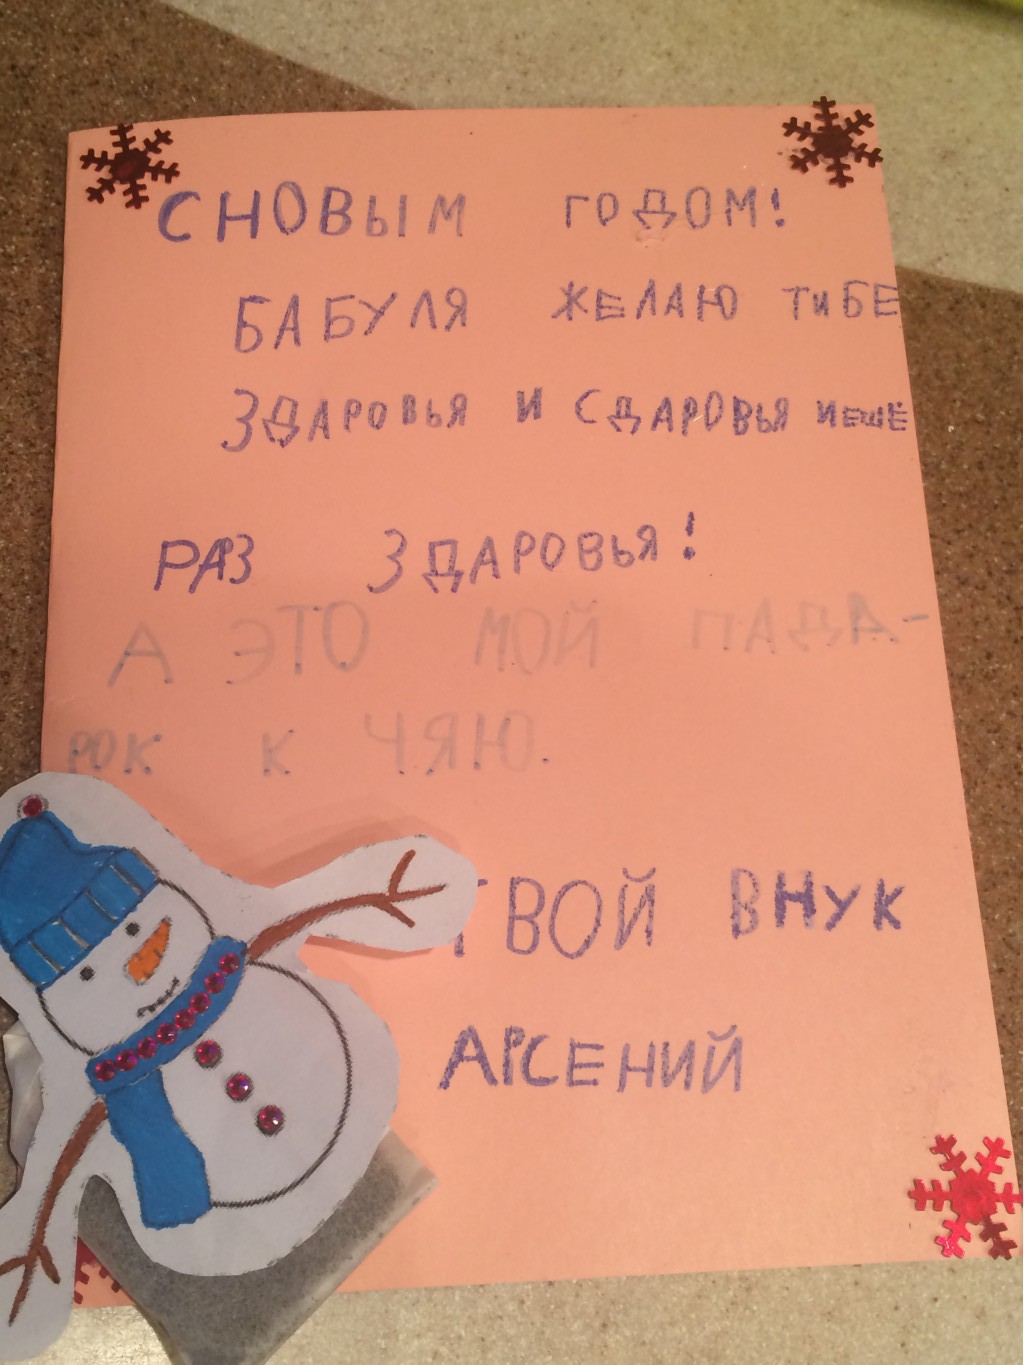 СНОВЫМ ГОДОМ!
БАБУЛЯ ЖЕЛАЮ ТИБЕ
ЗДАРОВЬЯ И СДАРОВЬЯ ИЕШЁ
РАЗ ЗДАРОВЬЯ!
А ЭТО МОЙ ПАДА-
РОК К ЧЯЮ.
ТВОЙ ВНУК
АРСЕНИЙ